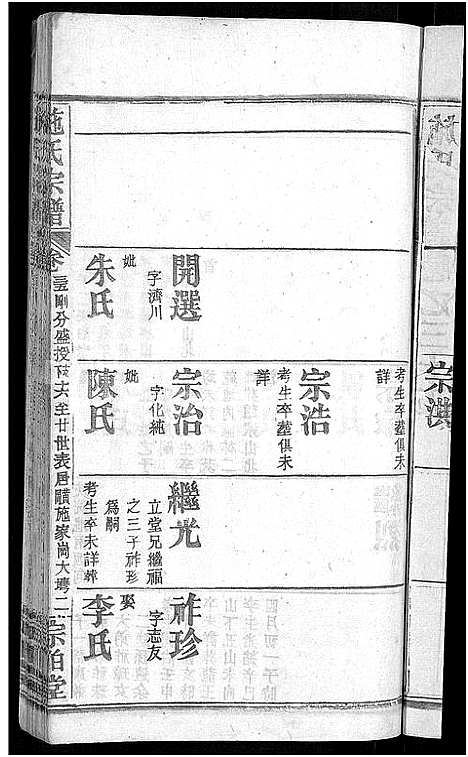 宗洪
考生卒塟俱未
詳
宗浩
考生卒塟俱未
詳
開選
字濟川
妣
朱氏
宗治
字化純
妣
陳氏
繼光
立堂兄繼福
之三子祚珍
爲嗣
考生卒未詳葬
祚珍
字志友
娶
李氏
施氏宗譜
卷
剛分盛授
至廿世表居
施家崗大塆二
宗伯堂